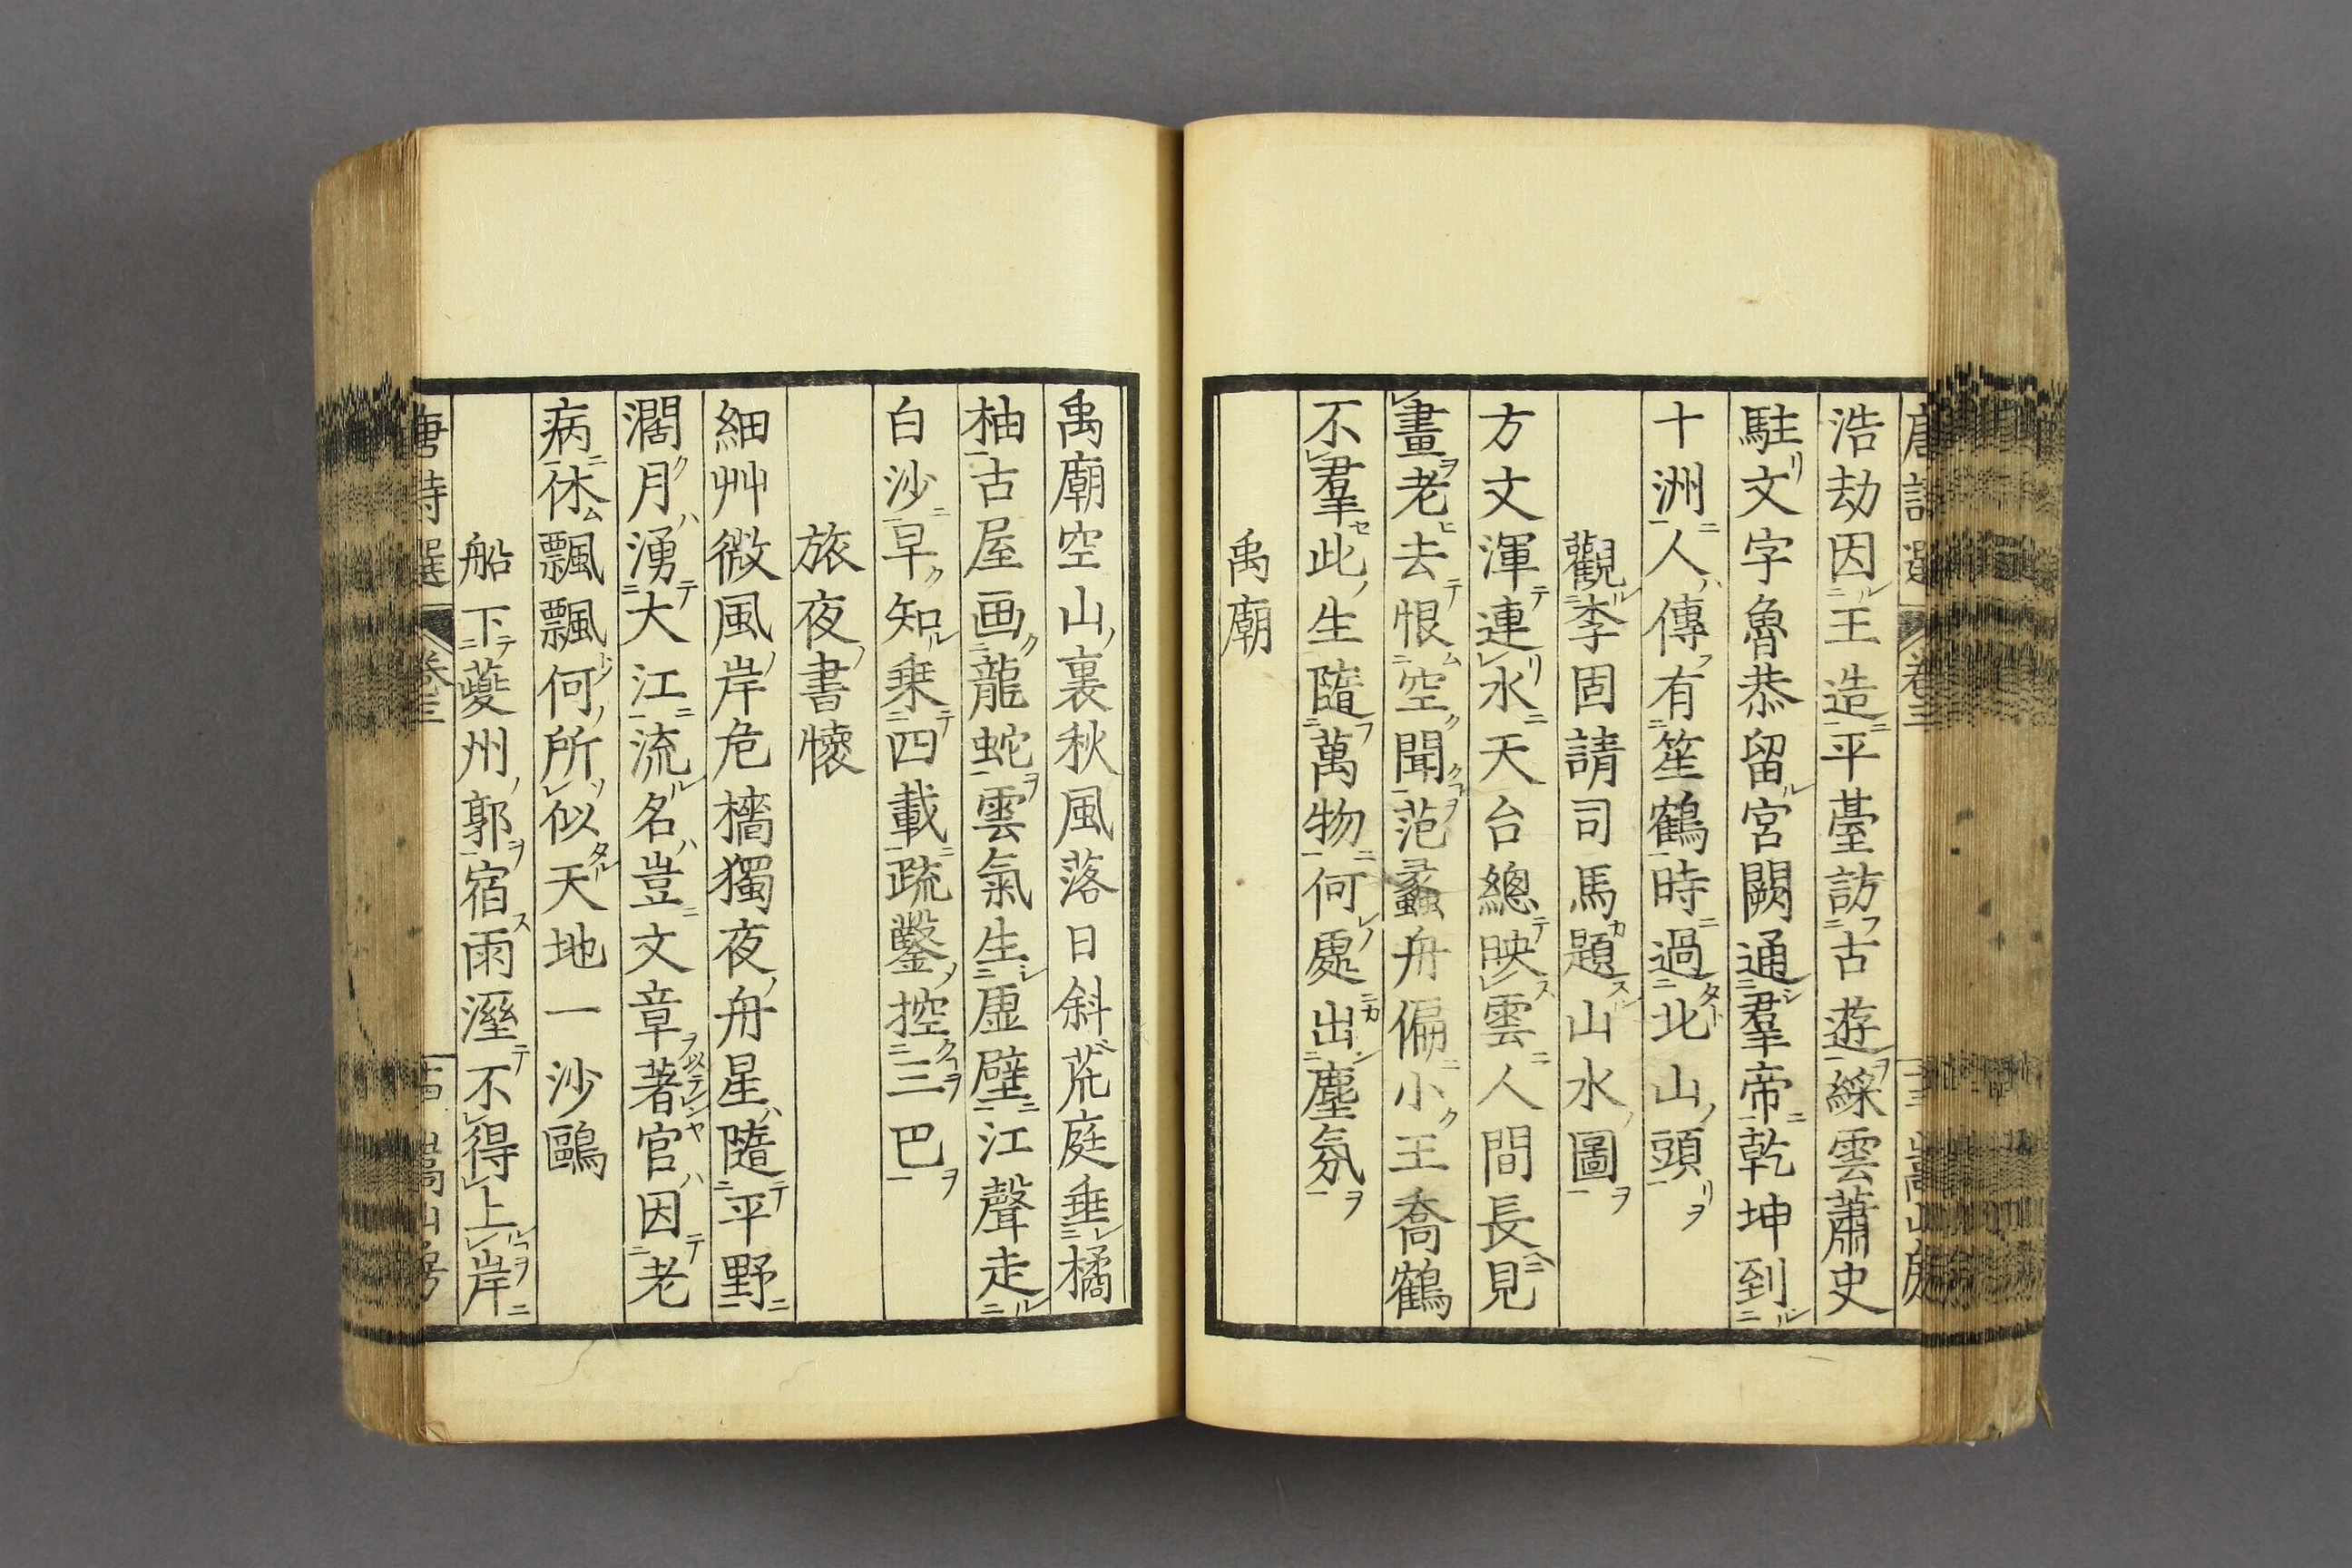 浩劫因王造平臺訪古遊綵雲蕭史
駐文字魯恭留宮闕通羣帝乾坤到
十洲人傳有笙鶴時過北山頭
觀李固請司馬題山水圖
方丈渾連水天台總映雲人間長見
畫老去恨空聞范蠡舟偏小王喬鶴
不羣此生隨萬物何處出塵氛
禹廟
禹廟空山裏秋風落日斜荒庭垂橘
柚古屋画龍蛇雲氣生虛壁江聲走
白沙早知乗四載疏鑿控三巴
旅夜書懷
細艸微風岸危檣獨夜舟星隨平野
濶月湧大江流名豈文章著官因老
病休飄飄何所似天地一沙鷗
船下夔州郭宿雨溼不得上岸
唐詩選 卷三